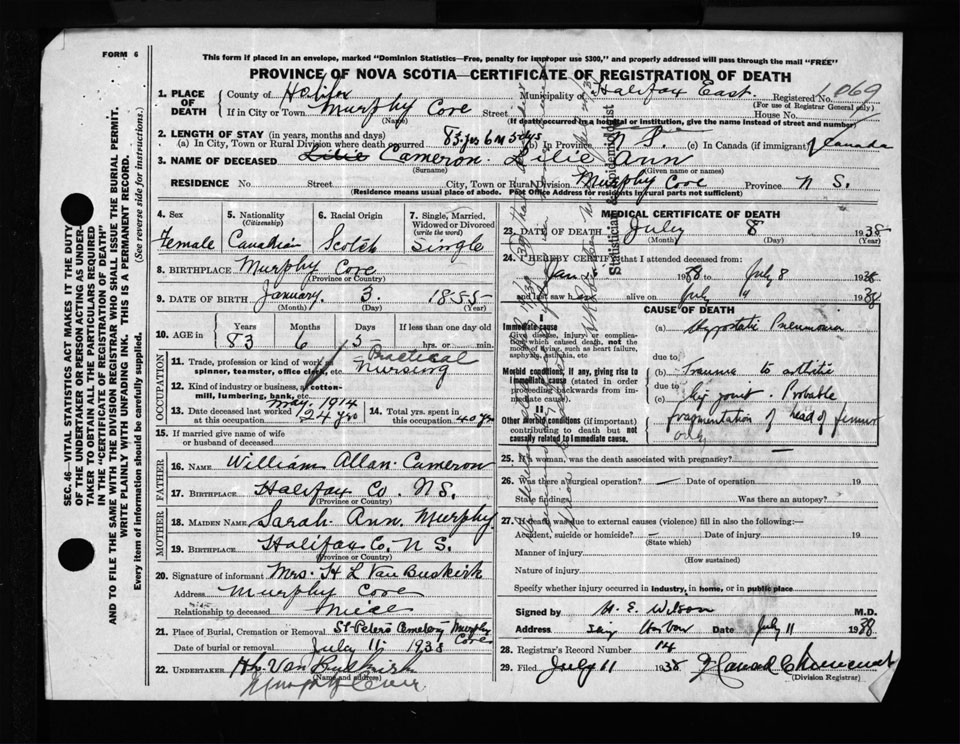 FORM 6
This form if placed in an envelope, marked "Dominion Statistics—Free, penalty for improper use $300," and properly addressed will pass through the mail "FREE"
PROVINCE OF NOVA SCOTIA—CERTIFICATE OF REGISTRATION OF DEATH
1. PLACE OF DEATH
County of Halifax Municipality of Halifax East. Registered No. 1069
(For use of Registrar General only)
If in City or Town Murphy Cove Street House No.
(Name) (If death occurred in a hospital or institution, give the name instead of street and number)
2. LENGTH OF STAY (in years, months and days)
(a) In City, Town or Rural Division where death occurred 83 yrs 6 m 5 dys (b) In Province N S. (c) In Canada (if immigrant) Canada
3. NAME OF DECEASED Lilie Cameron Lilie Ann
(Surname) (Given name or names)
RESIDENCE No. Street City, Town or Rural Division Murphy Cove Province N S.
(Residence means usual place of abode. Post Office Address for residents in rural parts not sufficient)
4. Sex
Female
5. Nationality
(Citizenship)
Canadian
6. Racial Origin
Scotch
7. Single, Married, Widowed or Divorced
(write the word)
Single
8. BIRTHPLACE Murphy Cove
(Province or Country)
9. DATE OF BIRTH January 3 1855
(Month) (Day) (Year)
10. AGE in
Years Months Days If less than one day old
83 6 5 hrs. or min.
OCCUPATION
11. Trade, profession or kind of work as spinner, teamster, office clerk, etc. Practical Nursing
12. Kind of industry or business, as cotton-mill, lumbering, bank, etc.
13. Date deceased last worked at this occupation 1914 24 yrs
14. Total yrs. spent in this occupation 40 yrs
15. If married give name of wife or husband of deceased
FATHER
16. NAME William Allan Cameron
17. BIRTHPLACE Halifax Co. N S.
(Province or Country)
MOTHER
18. MAIDEN NAME Sarah Ann. Murphy
19. BIRTHPLACE Halifax Co. N S.
(Province or Country)
20. Signature of informant Mrs. H L Van Buskirk
Address Murphy Cove
Relationship to deceased Niece
21. Place of Burial, Cremation or Removal St Peters Cemetery Murphy Cove
Date of burial or removal July 11 1938
22. UNDERTAKER H L Van Buskirk
(Name and address)
Murphy Cove
MEDICAL CERTIFICATE OF DEATH
23. DATE OF DEATH July 8 1938
(Month) (Day) (Year)
24. I HEREBY CERTIFY that I attended deceased from:
Jan 1938 to July 8 1938
and last saw h alive on July 1938
CAUSE OF DEATH
Immediate cause
Give disease, injury or complication which caused death, not the mode of dying, such as heart failure, asphyxia, asthenia, etc
(a) Hypostatic Pneumonia
due to
Morbid conditions, if any, giving rise to immediate cause (stated in order proceeding backwards from immediate cause).
(b) Trauma to arthritic
due to
(c) hip joint. Probable
fragmentation of head of femur
only
II
Other morbid conditions (if important) contributing to death but not causally related to immediate cause.
25. If a woman, was the death associated with pregnancy?
26. Was there a surgical operation? Date of operation 19
State findings Was there an autopsy?
27. If death was due to external causes (violence) fill in also the following:—
Accident, suicide or homicide? Date of injury 19
(State which)
Manner of injury
(How sustained)
Nature of injury
Specify whether injury occurred in industry, in home, or in public place
Signed by M. E. Wilson M.D.
Address Harbour Date July 11 1938
28. Registrar's Record Number 14
29. Filed July 11 1938
(Division Registrar)
Statistician & Epidemiologist
SEC. 46—VITAL STATISTICS ACT MAKES IT THE DUTY OF THE UNDERTAKER OR PERSON ACTING AS UNDERTAKER TO OBTAIN ALL THE PARTICULARS REQUIRED IN THE "CERTIFICATE OF REGISTRATION OF DEATH" AND TO FILE THE SAME WITH THE DIVISION REGISTRAR WHO SHALL ISSUE THE BURIAL PERMIT.
WRITE PLAINLY WITH UNFADING INK. THIS IS A PERMANENT RECORD.
Every item of information should be carefully supplied. (See reverse side for instructions.)